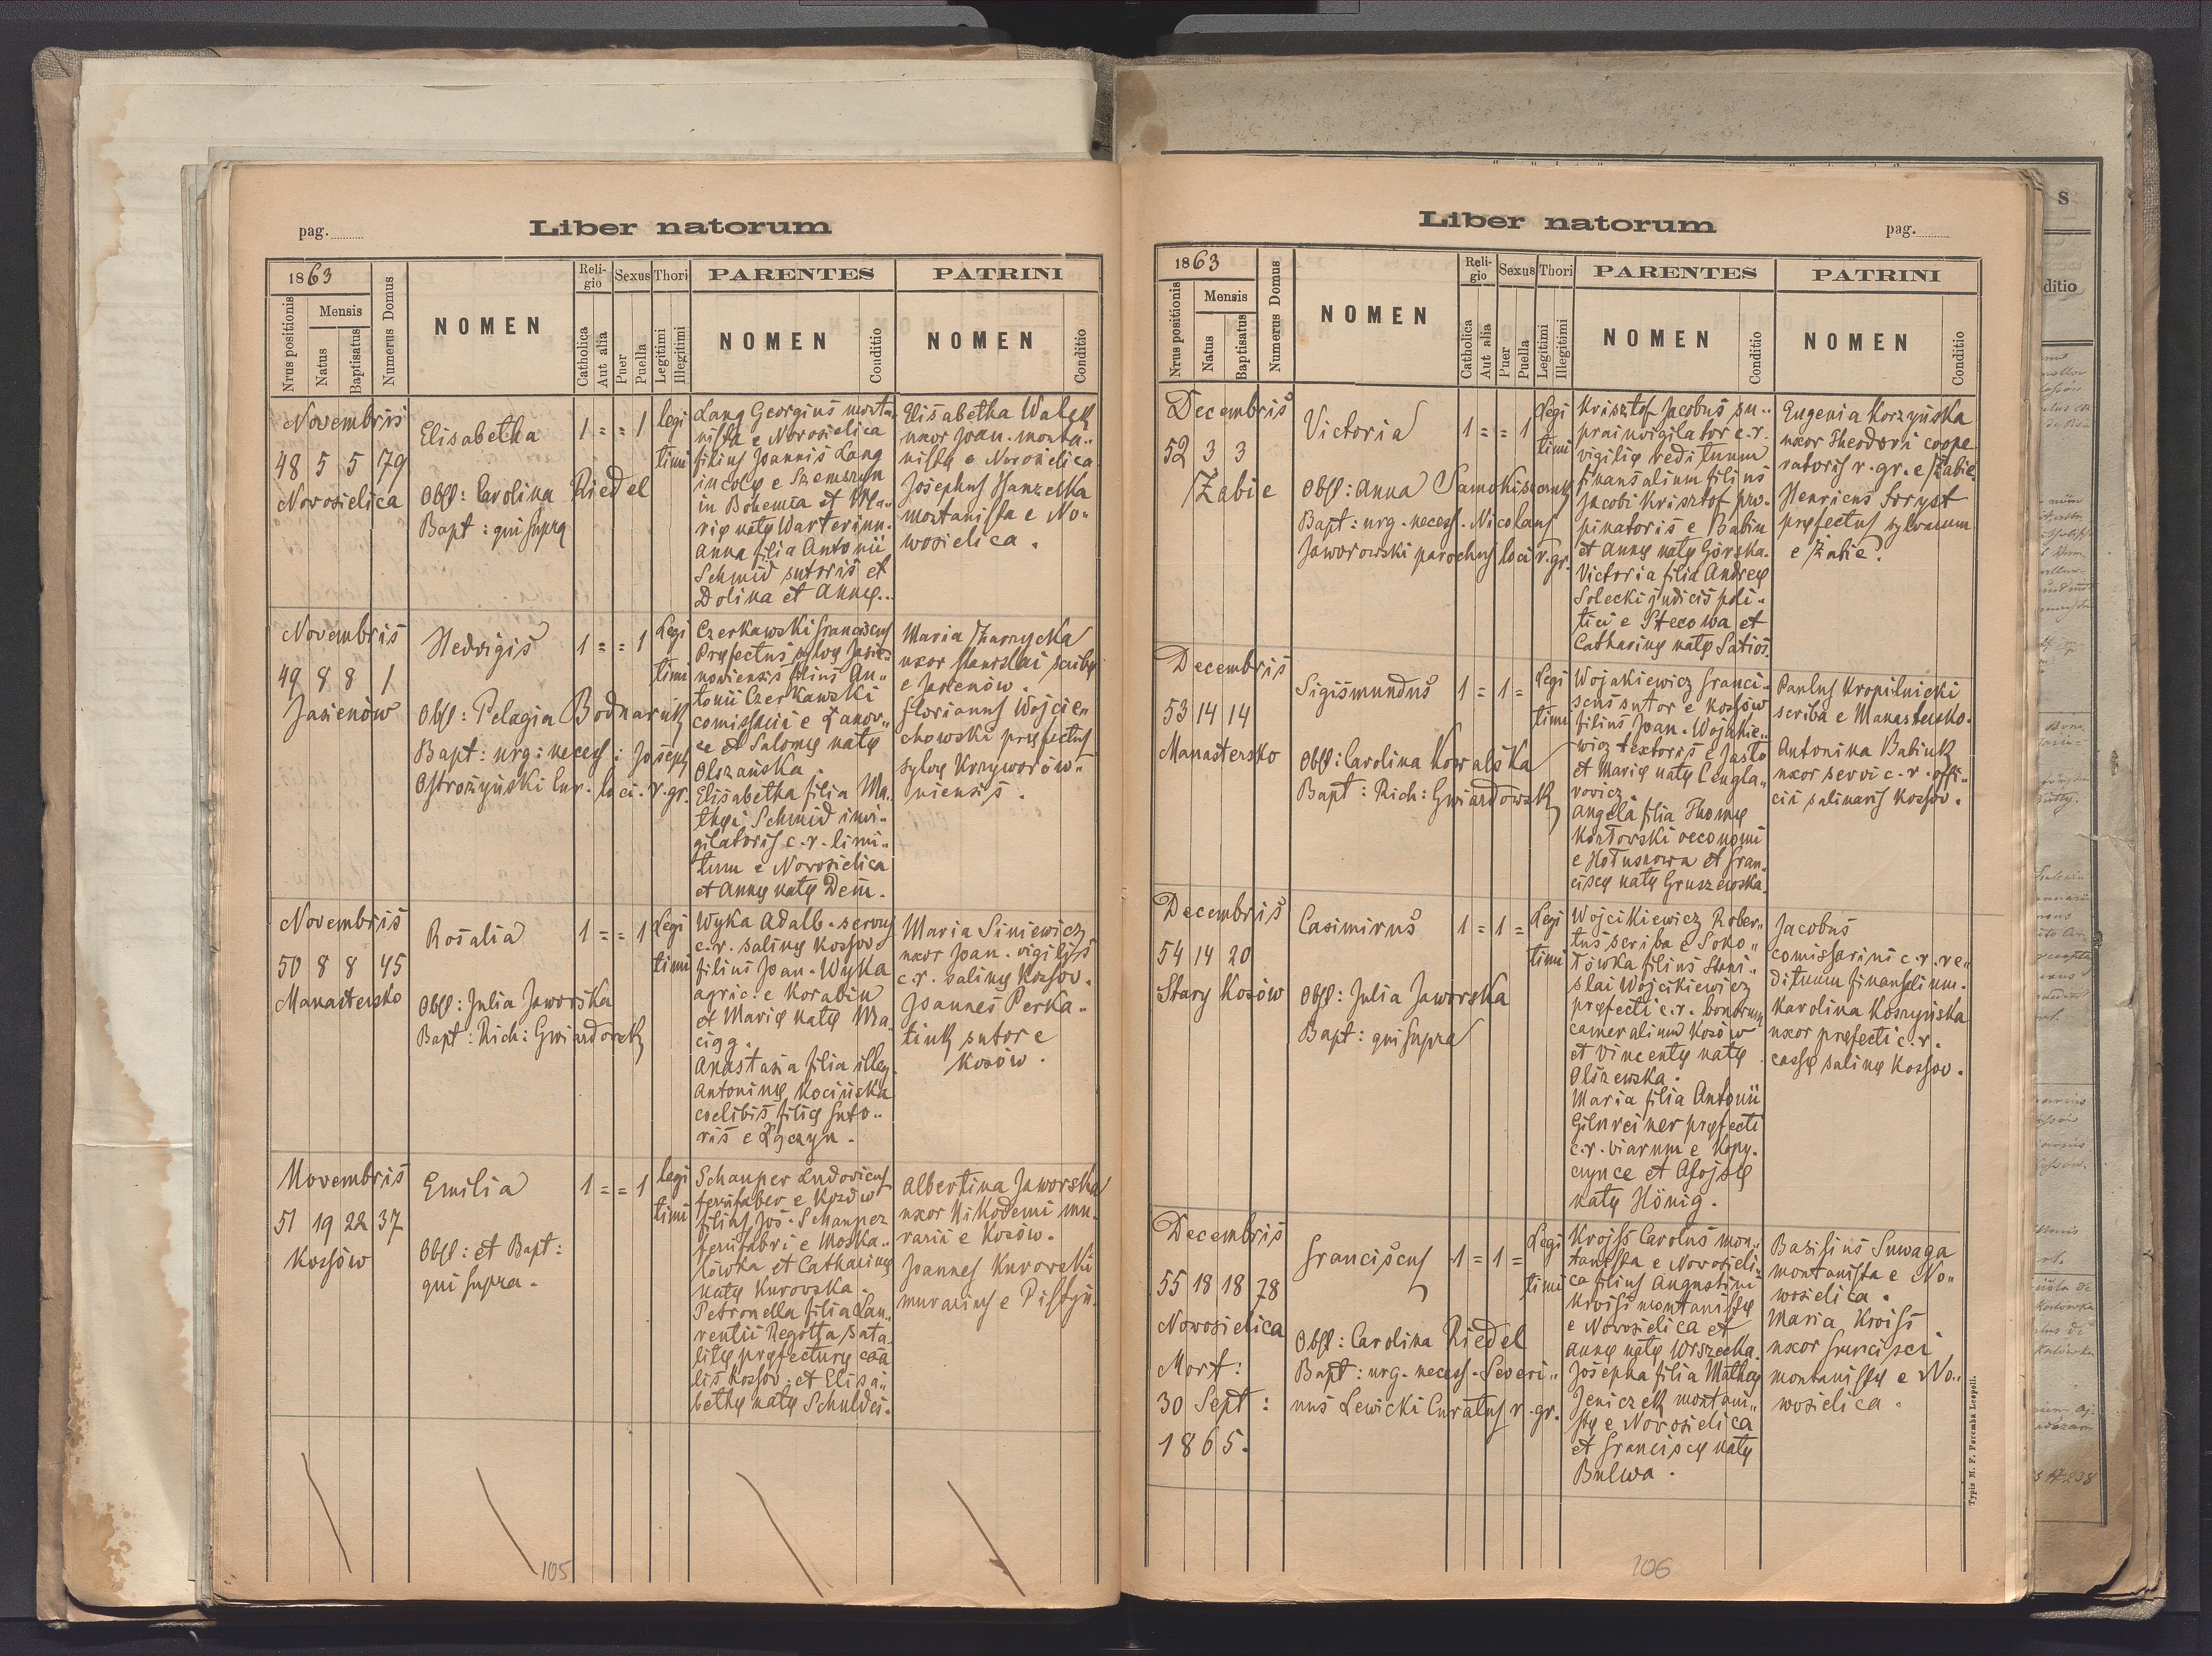 pag.
Liber natorum
1863
Mensis
Nrus positionis
Natus
Baptisatus
Numerus Domus
NOMEN
Religio
Catholica
Aut alia
Sexus
Puer
Puella
Thori
Legitimi
Illegitimi
PARENTES
NOMEN
Conditio
PATRINI
NOMEN
Conditio
Novembris
48 5 5 79
Novosielica
Elisabetha
Obst: Carolina Riedel
Bapt: qui supra
1 = = 1
legi
timi
Lang Georgius monta-
nista e Novosielica
filius Joannis Lang
incolę e Szemszyn
in Bohemia et Ma-
rię natę Warterinn.
Anna filia Antonii
Schmid sutoris et
Dolina et Annę..
Elisabetha Walek
uxor Joan. monta-
nistę e Novosielica
Josephus Hanzelka
montanista e No-
wosielica.
Novembris
49 8 8 1
Jasienów
Hedvigis
Obst: Pelagia Bodnaruk
Bapt: urg: necess: Joseph
Ostrożyński Cur. loci. r. gr.
1 = = 1
Legi
timi
Czerkawski Franciscus
Pręfectus sylvę Jasie-
noviensis filius An-
tonii Czerkawski
comissarii e Łanov-
ce et Salomę natę
Olszańska.
Elisabetha filia Ma-
thei Schmid invi-
gilatoris c. r. limi-
tum e Novosielica
et Annę natę Dem.
Maria
uxor Stanislai scribę
e Jasienów.
Florianus Wojcie-
chowski pręfectus
sylvę Krzyworów-
niensis.
Novembris
50 8 8 45
Manastersko
Rosalia
Obst: Julia Jaworska
Bapt: Rich: Gwiazdowski
1 = = 1
Legi
timi
Wyka Adalb. servus
c. r. salinę Kossov
filius Joan. Wyka
agric: e Korabiu
et Marię natę Ma-
cigg.
Anastasia filia illeg.
Antoninę Kocińska
coelibis filię suto-
ris e Łączyn.
Maria Siniewicz
uxor Joan. vigilys
c. r. salinę Kossov.
Joannes Perka-
tiuk sutor e
Kosów.
Novembris
51 19 22 37
Kossów
Emilia
Obst: et Bapt:
qui supra.
1 = = 1
legi
timi
Schauper Ludovicus
ferrifaber e Kosów
filius Jos. Schauper
ferrifabri e Moska-
lówka et Catharinę
natę Kurovska.
Petronella filia Lau-
rentii Regotta, sata-
litę pręfecturę
lis Kossov. et Elisa-
bethę natę Schuldes.
Albertina Jaworska
uxor Nikodemi mu-
rarii e Kosów.
Joannes Kurovski
murarius e Pistyń.
105
Liber natorum
pag.
1863
Mensis
Nrus positionis
Natus
Baptisatus
Numerus Domus
NOMEN
Religio
Catholica
Aut alia
Sexus
Puer
Puella
Thori
Legitimi
Illegitimi
PARENTES
NOMEN
Conditio
PATRINI
NOMEN
Conditio
Decembris
52 3 3
Żabie
Victoria
Obst: Anna Samokiszczuk
Bapt: urg. necess. Nicolaus
Jaworowski parochus loci r. gr.
1 = = 1
Legi
timi
Krisztof Jacobus su-
prainvigilator c. r.
vigilię redituum
finansalium filius
Jacobi Krisztof pro-
pinatoris e Babin
et Annę natę Górska.
Victoria filia Andreę
Solecki judicis poli-
tici e Stecowa et
Catharinę natę Satios.
Eugenia Korzyńska
uxor Theodori coope-
ratoris r. gr. e Żabie
Henricus Foryst
pręfectus sylvarum
e Żabie.
Decembris
53 14 14
Manastersko
Sigismundus
Obst: Carolina Kowalska
Bapt: Rich: Gwiazdowski
1 = 1 =
Legi
timi
Wojakiewicz Franci-
scus sutor e Kossów
filius Joan. Wojakie-
wicz textoris e Jasło
et Marię natę Cengla-
rovicz.
Angela filia Thomę
Kozłovski oeconomi
e Hołuskowa et Fran-
ciscę natę Gruszewska.
Paulus Kropilnicki
scriba e Manastersko.
Antonina Babiuk
uxor servi c. r. offi-
cii salinaris Kossov.
Decembris
54 14 20
Stary Kosów
Casimirus
Obst: Julia Jaworska
Bapt: qui supra
1 = 1 =
Legi
timi
Wojcikiewicz Rober-
tus scriba e Soko-
łówka filius Stani-
slai Wojcikiewicz
pręfecti c. r. bonorum
cameralium Kosów
et Vincentę natę
Olszewska.
Maria filia Antonii
Gilnreiner pręfecti
c. r. viarum e Kopy-
czynce et Alojsę
natę Hönig.
Jacobus
comissarius c. r. re-
dituum finansalium.
Karolina Koszyńska
uxor pręfecti c. r.
cassę salinę Kossov.
Decembris
55 18 18 78
Novosielica
Mort:
30 Sept:
1865.
Franciscus
Obst: Carolina Riedel
Bapt: urg. necess. Severi-
nus Lewicki Curatus r. gr.
1 = 1 =
Legi
timi
Kroiss Carolus mon-
tanista e Novosieli-
ca filius Augustini
Kroiss montanistę
e Novosielica et
Annę natę Wrszecka.
Josepha filia Mathę
Jeniczek montani-
stę e Novosielica
et Franciscę natę
Bulwa.
Basilius Suwaga
montanista e No-
wosielica.
Maria Kroiss
uxor Francisci
montanistę e No-
wosielica.
Typis M. F. Poremba Leopoli.
106